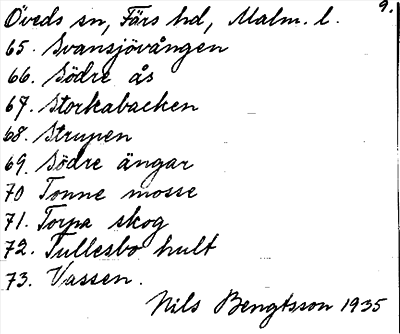 9.
Öveds sn, Färs hd, Malm. l.
65. Svansjövången
66. Södre ås
67. Storkabacken
68. Strupen
69. Södre ängar
70 Tonne mosse
71. Torpa skog
72. Tullesbo hult
73. Vassen.
Nils Bengtsson 1935